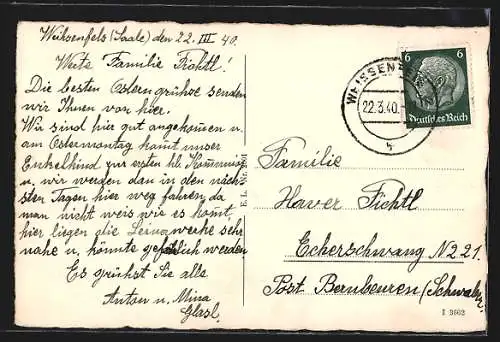 Weißenfels (Saale) den 22. III 40.
Werte Familie Fichtl!
Die besten Ostergrüße senden
wir Ihnen von hier.
Wir sind hier gut angekommen u.
am Ostermontag kommt unser
Enkelkind zur ersten hl. Kommunion
u. wir werden dan in den näch-
sten Tagen hier weg fahren, da
man nicht weis wie es komt,
hier liegen die Leuna werke sehr
nahe u. könnte gefährlich werden
Es grüßt Sie alle
Anton u. Mina
Glasl.
WEISSENFELS
22.3.40
6 6
Deutsches Reich
Familie
Xaver Fichtl
Echerschwang N 221.
Post Bernbeuren (Schwaben)
I 3862